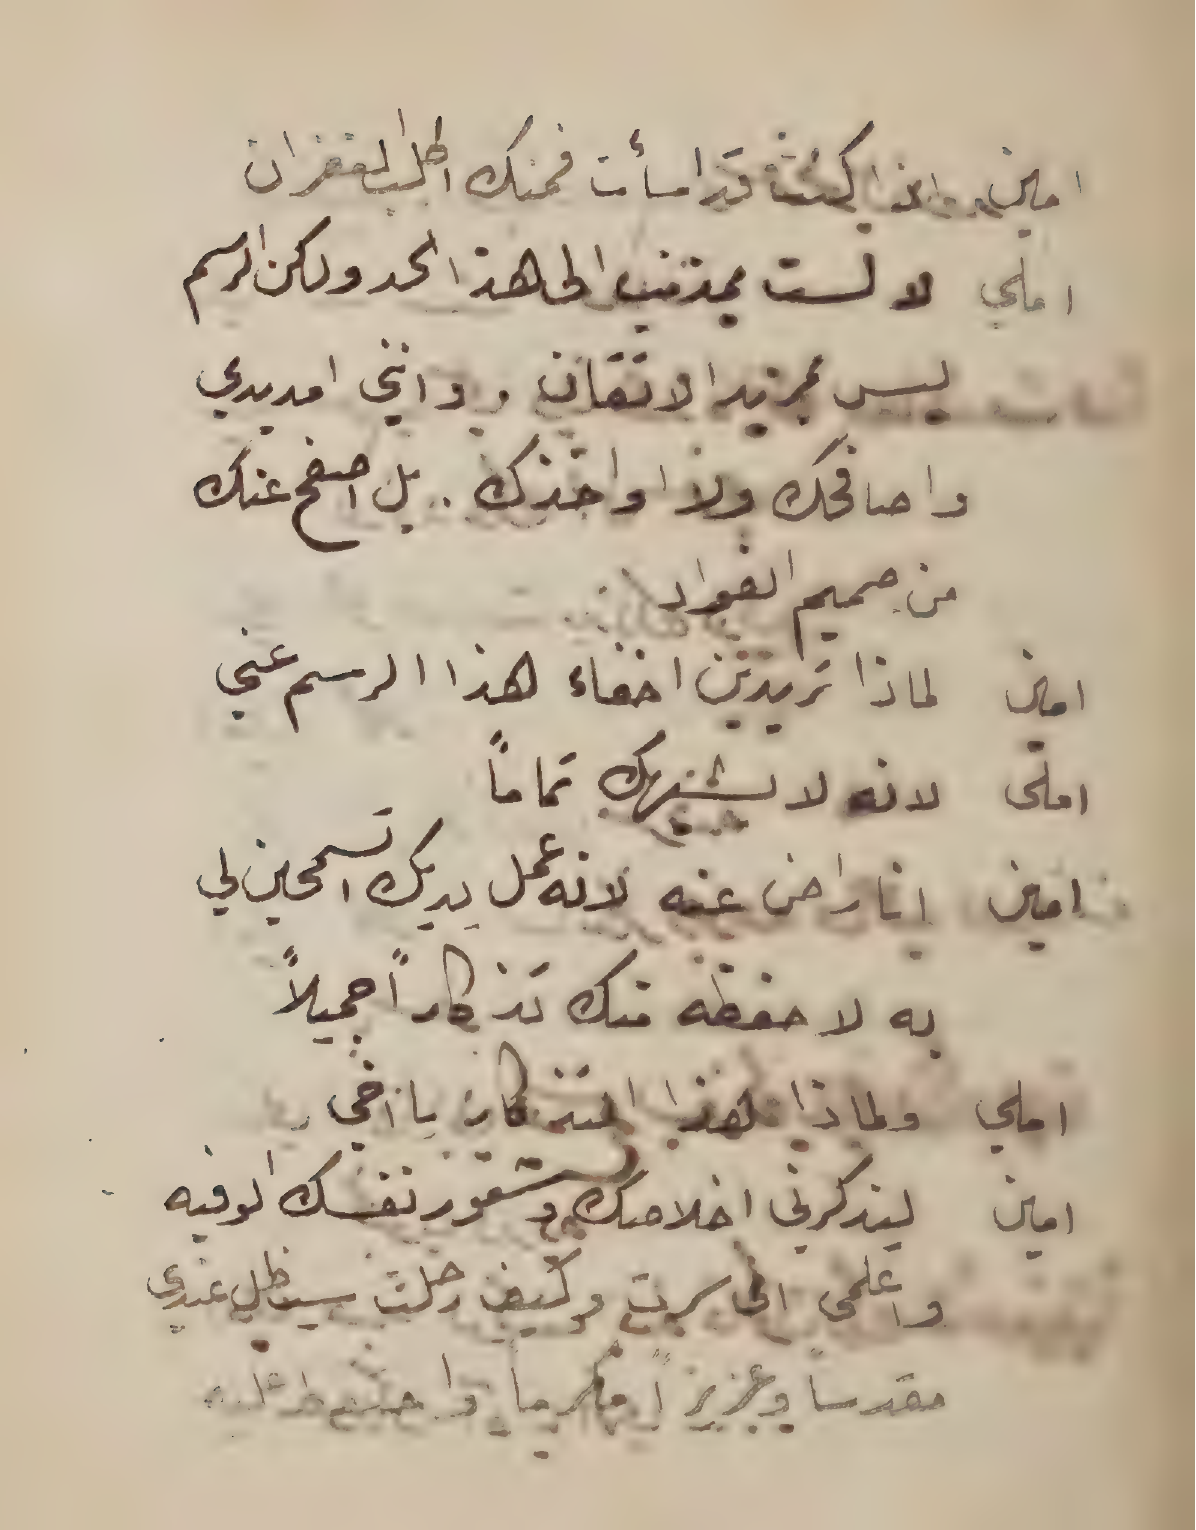 امين واذا كنت قد اسأت فمنك اطلب الغفران
املي لا لست بمذنب الى هذا الحد ولكن الرسم
ليس بمزيد الاتقان وانني امد يدي
واصافحك ولا اواخذك .. بل اصفح عنك
من صميم الفواد
امين لماذا تريدين اخفاء هذا الرسم عني
املي لانه لا يشبهك تماماً
امين انا راض عنه لانه عمل يديك اتسمحين لي
به لاحفظه منك تذكاراً جميلاً
املي ولماذا هذا التذكار يا اخي
امين ليذكرني اخلاصك وشعور نفسك الوفيه
واعلمي اني سرت وكيف رحلت سيظل عندي
مقدساً وعزيزاً مكرماً واحتفظ عليه